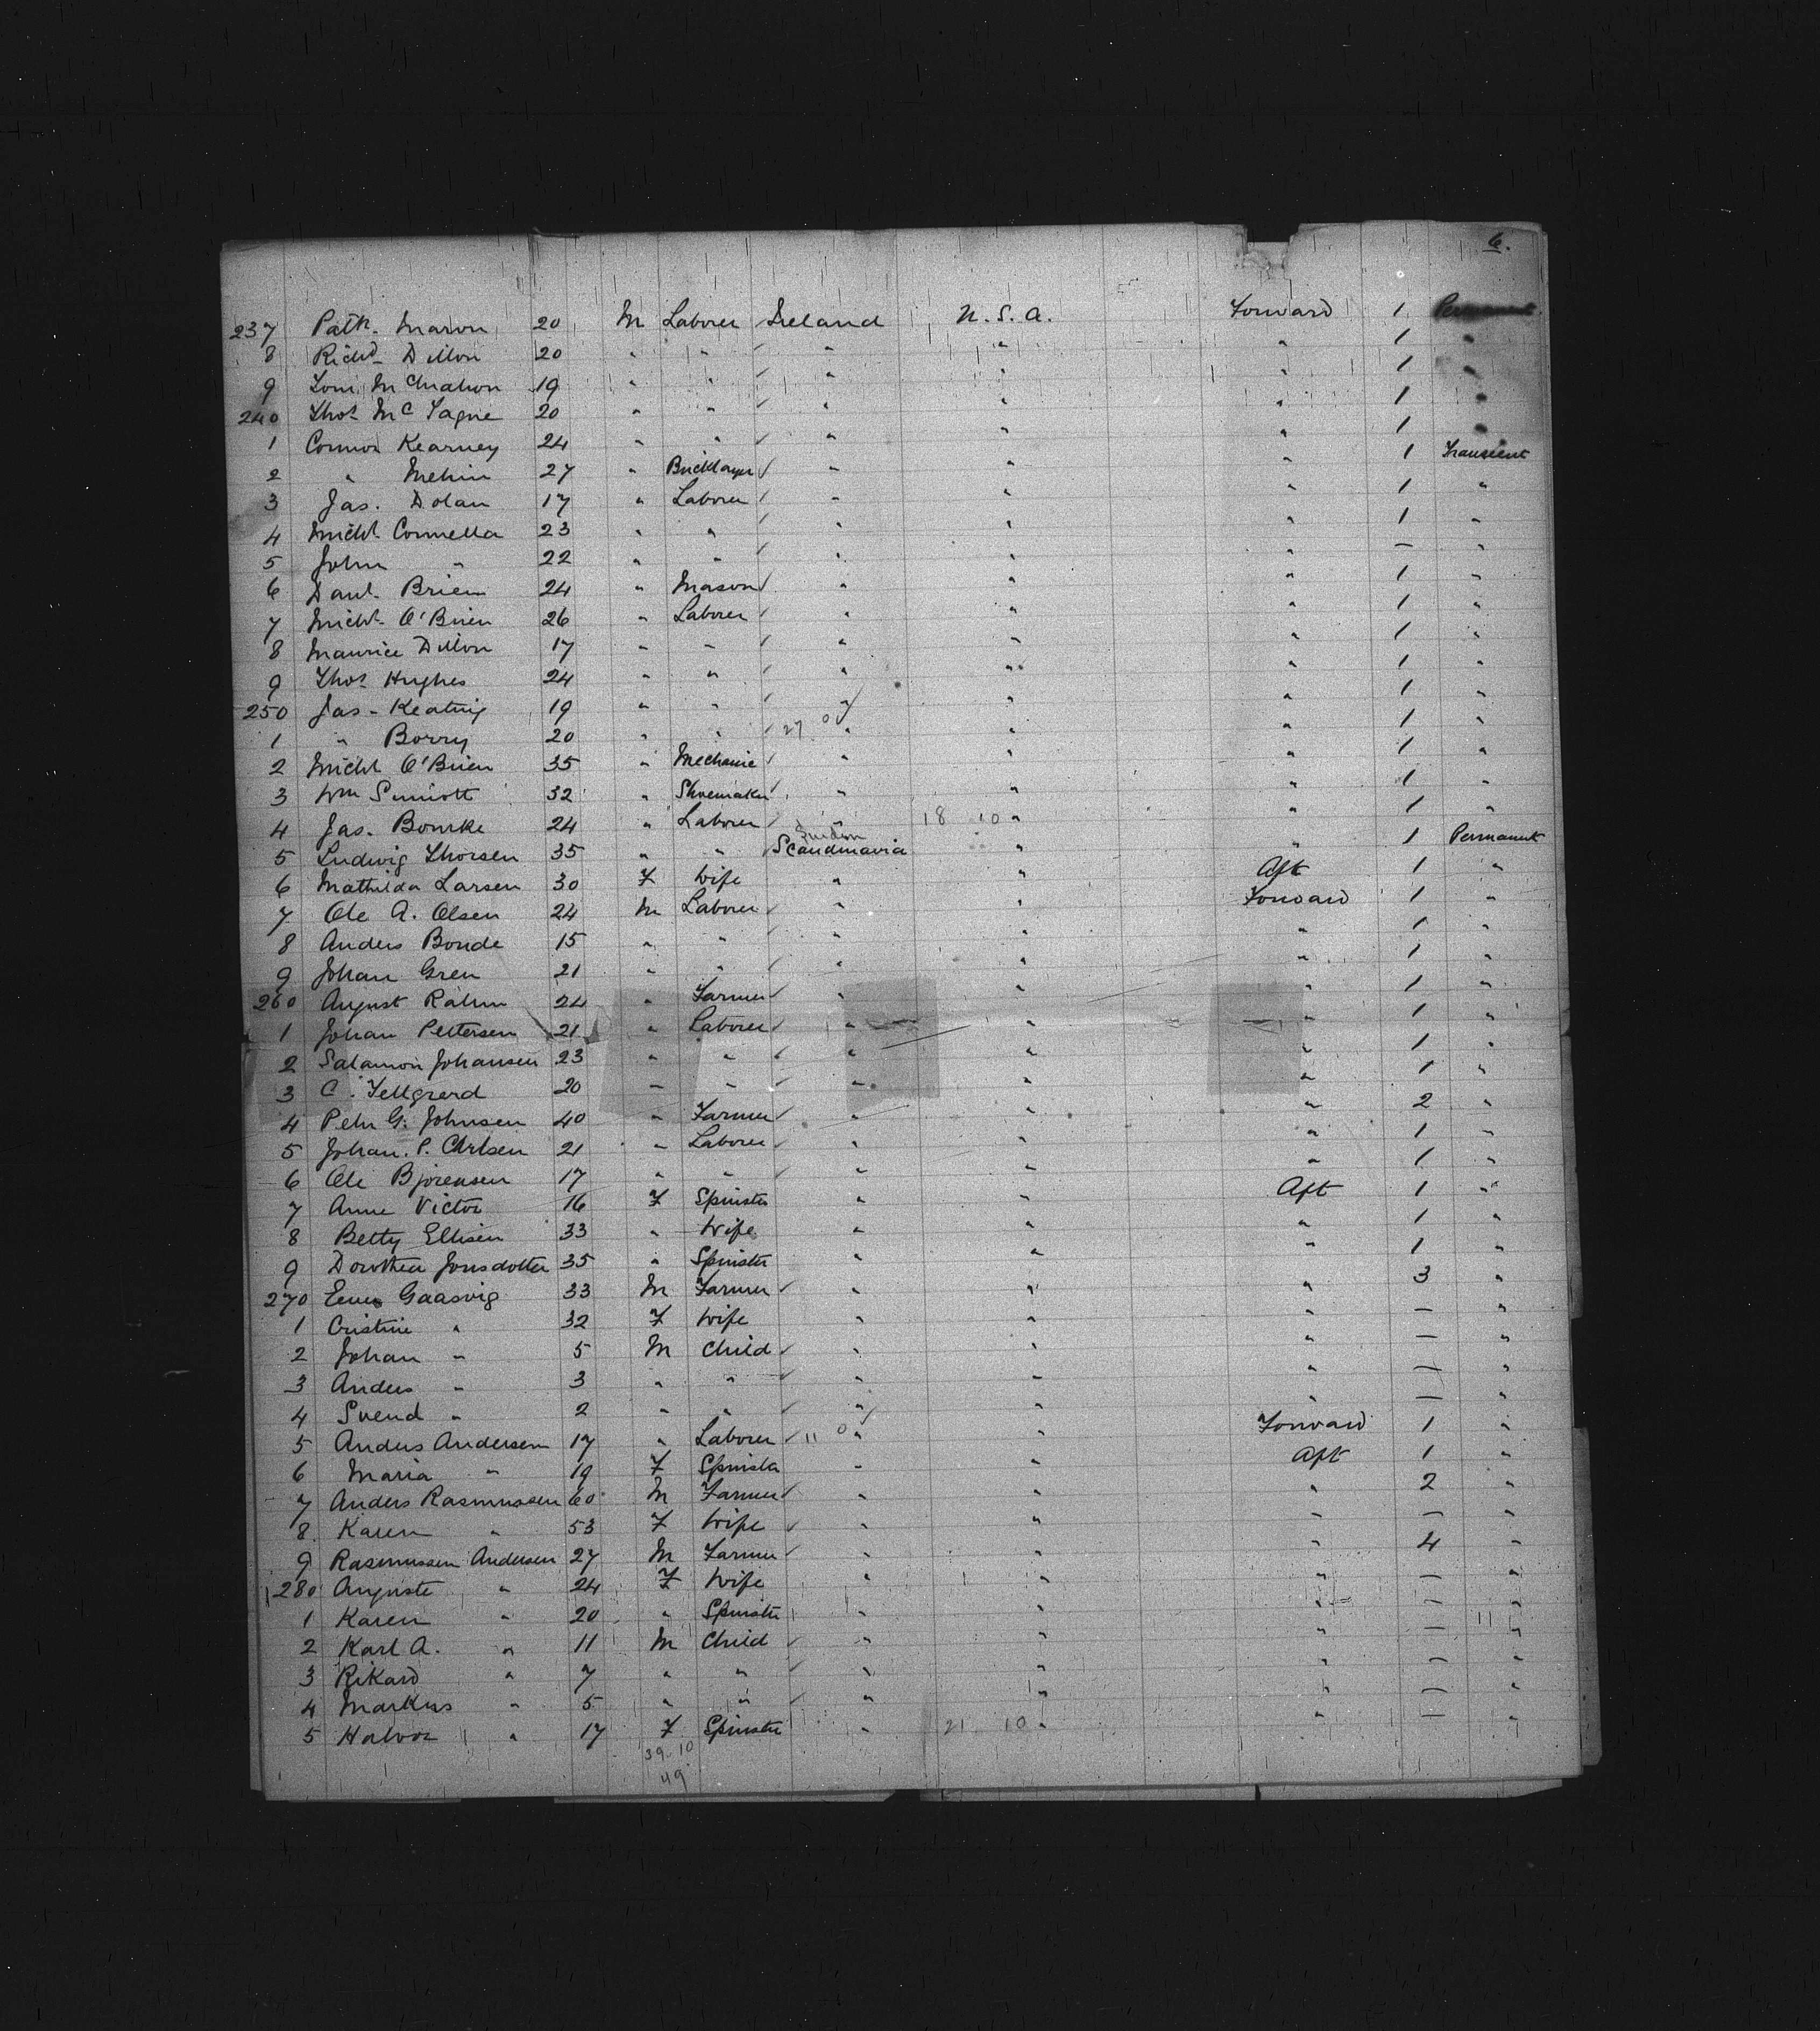 6.
237 Patk. Maron 20 M Laborer Ireland U.S.A. Forward 1 Permanent
8 Richd Dillon 20 " " " " " 1 "
9 Tom McMahon 19 " " " " " 1 "
240 Thos Mc Tague 20 " " " " " 1 "
1 Connor Kearney 24 " " " " " 1 "
2 " Mehin 27 " Bricklayer " " " 1 Transient
3 Jas. Dolan 17 " Laborer " " " 1 "
4 Michl Connella 23 " " " " " 1 "
5 John " 22 " " " " " — "
6 Danl. Brien 24 " Mason " " " 1 "
7 Michl. O'Brien 26 " Laborer " " " 1 "
8 Maurice Dillon 17 " " " " " 1 "
9 Thos Hughes 24 " " " " " 1 "
250 Jas. Keating 19 " " " " " 1 "
1 " Borry 20 " " 27 0 " " " 1 "
2 Michl O'Brien 35 " Mechanic " " " 1 "
3 Wm Sinnott 32 " Shoemaker " " " 1 "
4 Jas. Bourke 24 " Laborer " 18 10 " " 1 "
Sweden
5 Ludwig Thorsen 35 " " Scandinavia " " 1 Permanent
6 Mathilda Larsen 30 F Wife " " Aft 1 "
7 Ole A. Olsen 24 M Laborer " " Forward 1 "
8 Anders Bonde 15 " " " " " 1 "
9 Johan Gren 21 " " " " " 1 "
260 August Rahm 24 " Farmer " " " 1 "
1 Johan Pettersen 21 " Laborer " " " 1 "
2 Salamon Johansen 23 " " " " " 1 "
3 C. Tellgrerd 20 " " " " " 1 "
4 Pehr G. Johnsen 40 " Farmer " " " 2 "
5 Johan. P. Carlsen 21 " Laborer " " " 1 "
6 Ole Bjorensen 17 " " " " " 1 "
7 Anne Victor 16 F Spinster " " Aft 1 "
8 Betty Ellisen 33 " Wife " " " 1 "
9 Dorthea Jonsdotter 35 " Spinster " " " 1 "
270 Gaasvig 33 M Farmer " " " 3 "
1 Cristine " 32 F Wife " " " — "
2 Johan " 5 M Child " " " — "
3 Anders " 3 " " " " " — "
4 Svend " 2 " " " " " — "
5 Anders Andersen 17 " Laborer 11 0 " " Forward 1 "
6 Maria " 19 F Spinster " " Aft 1 "
7 Anders Rasmussen 60 M Farmer " " " 2 "
8 Karen " 53 F Wife " " " — "
9 Rasmussen Andersen 27 M Farmer " " " 4 "
280 Auguste " 24 F Wife " " " — "
1 Karen " 20 " Spinster " " " — "
2 Karl A. " 11 M Child " " " — "
3 Rikard " 7 " " " " " — "
4 Markus " 5 " " " " " — "
5 Halvor " 17 F Spinster " 21 10 " " —
39.10
49